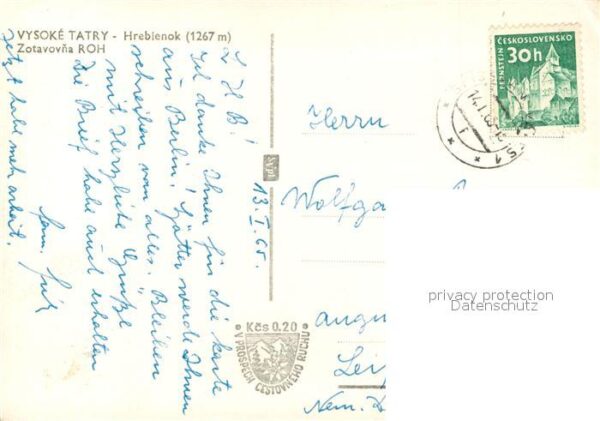 VYSOKÉ TATRY - Hrebienok (1267 m)
Zotavovňa ROH
L H B!
Ich danke Ihnen für die Karte
aus Berlin! Später werde Ihnen
schreiben van alles. Bleiben
mit Herzliche Grüße
Die Brief habe auch erhalten
jetzt habe meh arbeit.
Fam.
13.I.65.
Herrn
Wolfga
augu
Lei
Nem. D
PERNŠTEJN
ČESKOSLOVENSKO
30h
Kčs 0.20
V PROSPECH CESTOVNÉHO RUCHU
privacy protection
Datenschutz